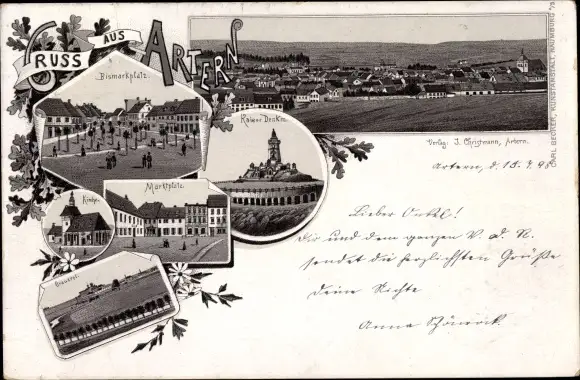 GRUSS AUS ARTERN
Bismarkplatz.
Kaiser Denkm.
Kirche.
Marktplatz.
Brauerei.
Verlag: J. Christmann, Artern.
CARL BECKER, KUNSTANSTALT, NAUMBURG a/S.
Artern, d. 15. 4. 98
Lieber Onkel!
Dir und dem ganzen V. d. N.
sendet die herzlichsten Grüße
Deine Nichte
Anna